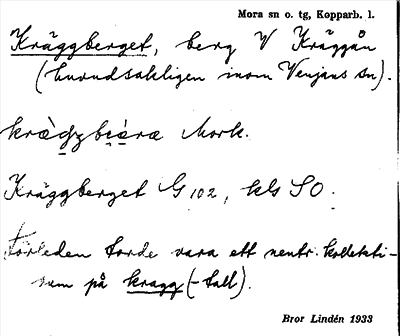 Mora sn o. tg, Kopparb. l.
Kräggberget, berg V Kräggån
(huvudsakligen inom Venjans sn).
Mork.
Kräggberget G 102, kls SO.
Förleden torde vara ett neutr. kollekti-
vum på kragg (-tall).
Bror Lindén 1933